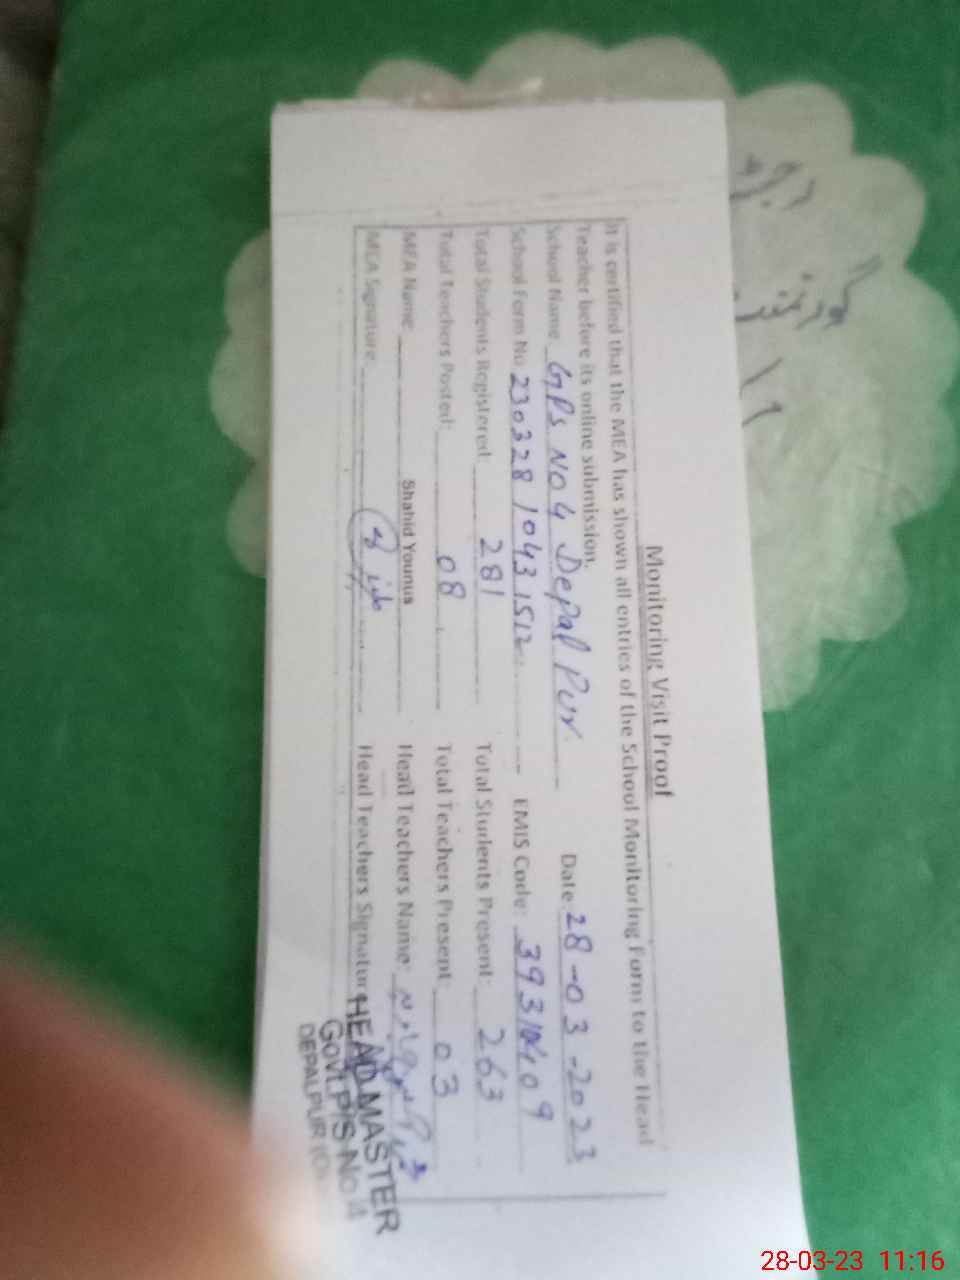 Monitoring Visit Proof
It is certified that the MEA has shown all entries of the School Monitoring Form to the Head
Teacher before its online submission.
School Name GPS NO 4 Depal Pur Date 28-03-2023
School Form No 230328 10431512 EMIS Code:
Total Students Registered: 281 Total Students Present: 263
Total Teachers Posted: 08 Total Teachers Present: 03
MEA Name: Shahid Younus Head Teachers Name:
MEA Signature: Head Teachers Signature
HEAD MASTER
GOVT. P/S No. 4
DEPALPUR
28-03-23 11:16